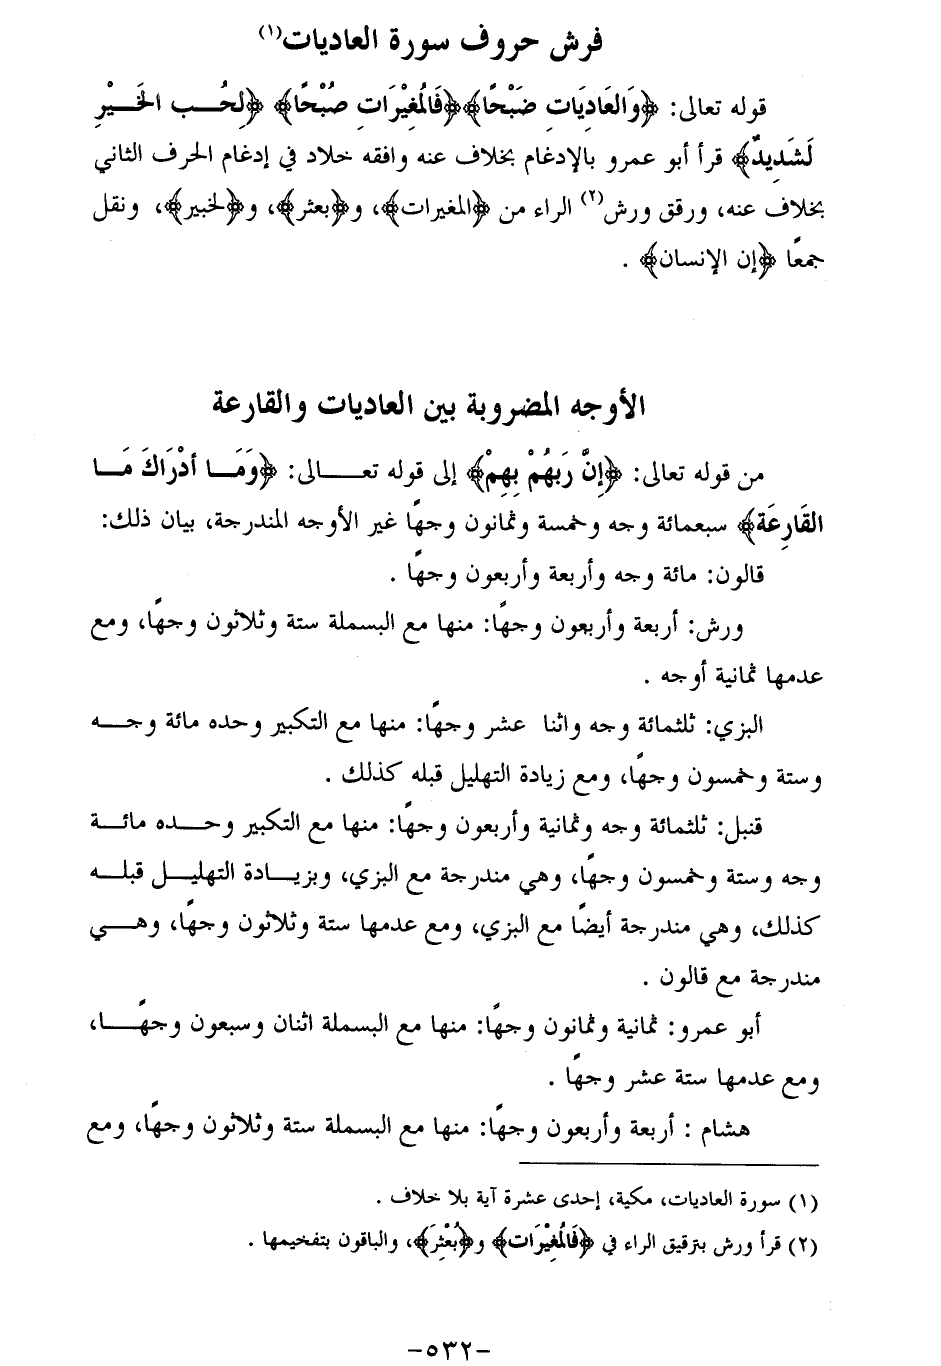 فرش حروف سورة العاديات(١)
قوله تعالى: ﴿وَالعَادِيَات ضَبْحًا﴾﴿فَالمُغِيْرَات صُبْحًا﴾ ﴿لِحُب الخَيْرِ
لَشَدِيدٌ﴾ قرأ أبو عمرو بالإدغام بخلاف عنه وافقه خلاد في إدغام الحرف الثاني
بخلاف عنه، ورقق ورش(٢) الراء من ﴿المغيرات﴾، و﴿بعثر﴾، و﴿لخبير﴾، ونقل
جمعًا ﴿إن الإنسان﴾ .
الأوجه المضروبة بين العاديات والقارعة
من قوله تعالى: ﴿إِنَّ رَبَهُمْ بِهِمْ﴾ إلى قوله تعالى: ﴿وَمَا أدْرَاكَ مَا
القَارِعَة﴾ سبعمائة وجه وخمسة وثمانون وجهًا غير الأوجه المندرجة، بيان ذلك:
قالون: مائة وجه وأربعة وأربعون وجهًا .
ورش: أربعة وأربعون وجهًا: منها مع البسملة ستة وثلاثون وجهًا، ومع
عدمها ثمانية أوجه .
البزي: ثلثمائة وجه واثنا عشر وجهًا: منها مع التكبير وحده مائة وجه
وستة وخمسون وجهًا، ومع زيادة التهليل قبله كذلك .
قنبل: ثلثمائة وجه وثمانية وأربعون وجهًا: منها مع التكبير وحده مائة
وجه وستة وخمسون وجهًا، وهي مندرجة مع البزي، وبزيادة التهليل قبله
كذلك، وهي مندرجة أيضًا مع البزي، ومع عدمها ستة وثلاثون وجهًا، وهي
مندرجة مع قالون .
أبو عمرو: ثمانية وثمانون وجهًا: منها مع البسملة اثنان وسبعون وجهًا،
ومع عدمها ستة عشر وجهًا .
هشام : أربعة وأربعون وجهًا: منها مع البسملة ستة وثلاثون وجهًا، ومع
(١) سورة العاديات، مكية، إحدى عشرة آية بلا خلاف .
(٢) قرأ ورش بترقيق الراء في ﴿فَالمُغِيْرَات﴾ و﴿بُعْثِرَ﴾، والباقون بتفخيمها .
-٥٣٢-